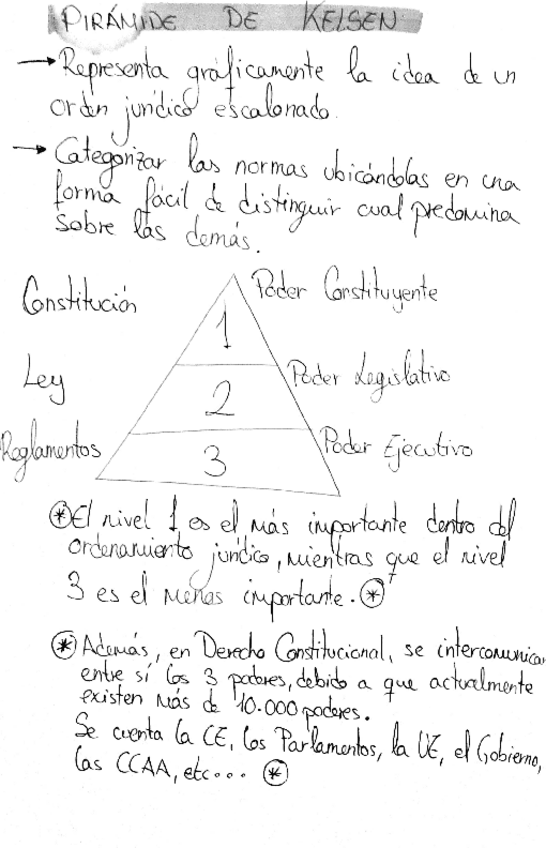 PIRÁMIDE DE KELSEN
→ Representa gráficamente la idea de un
orden jurídico escalonado.
→ Categorizar las normas ubicándolas en una
forma fácil de distinguir cual predomina
sobre las demás.
Constitución
Poder Constituyente
1
Ley
Poder Legislativo
2
Reglamentos
Poder Ejecutivo
3
* El nivel 1 es el más importante dentro del
ordenamiento jurídico, mientras que el nivel
3 es el menos importante. *
* Además, en Derecho Constitucional, se intercomunican
entre sí los 3 poderes, debido a que actualmente
existen más de 10.000 poderes.
Se cuenta la CE, los Parlamentos, la UE, el Gobierno,
las CCAA, etc... *